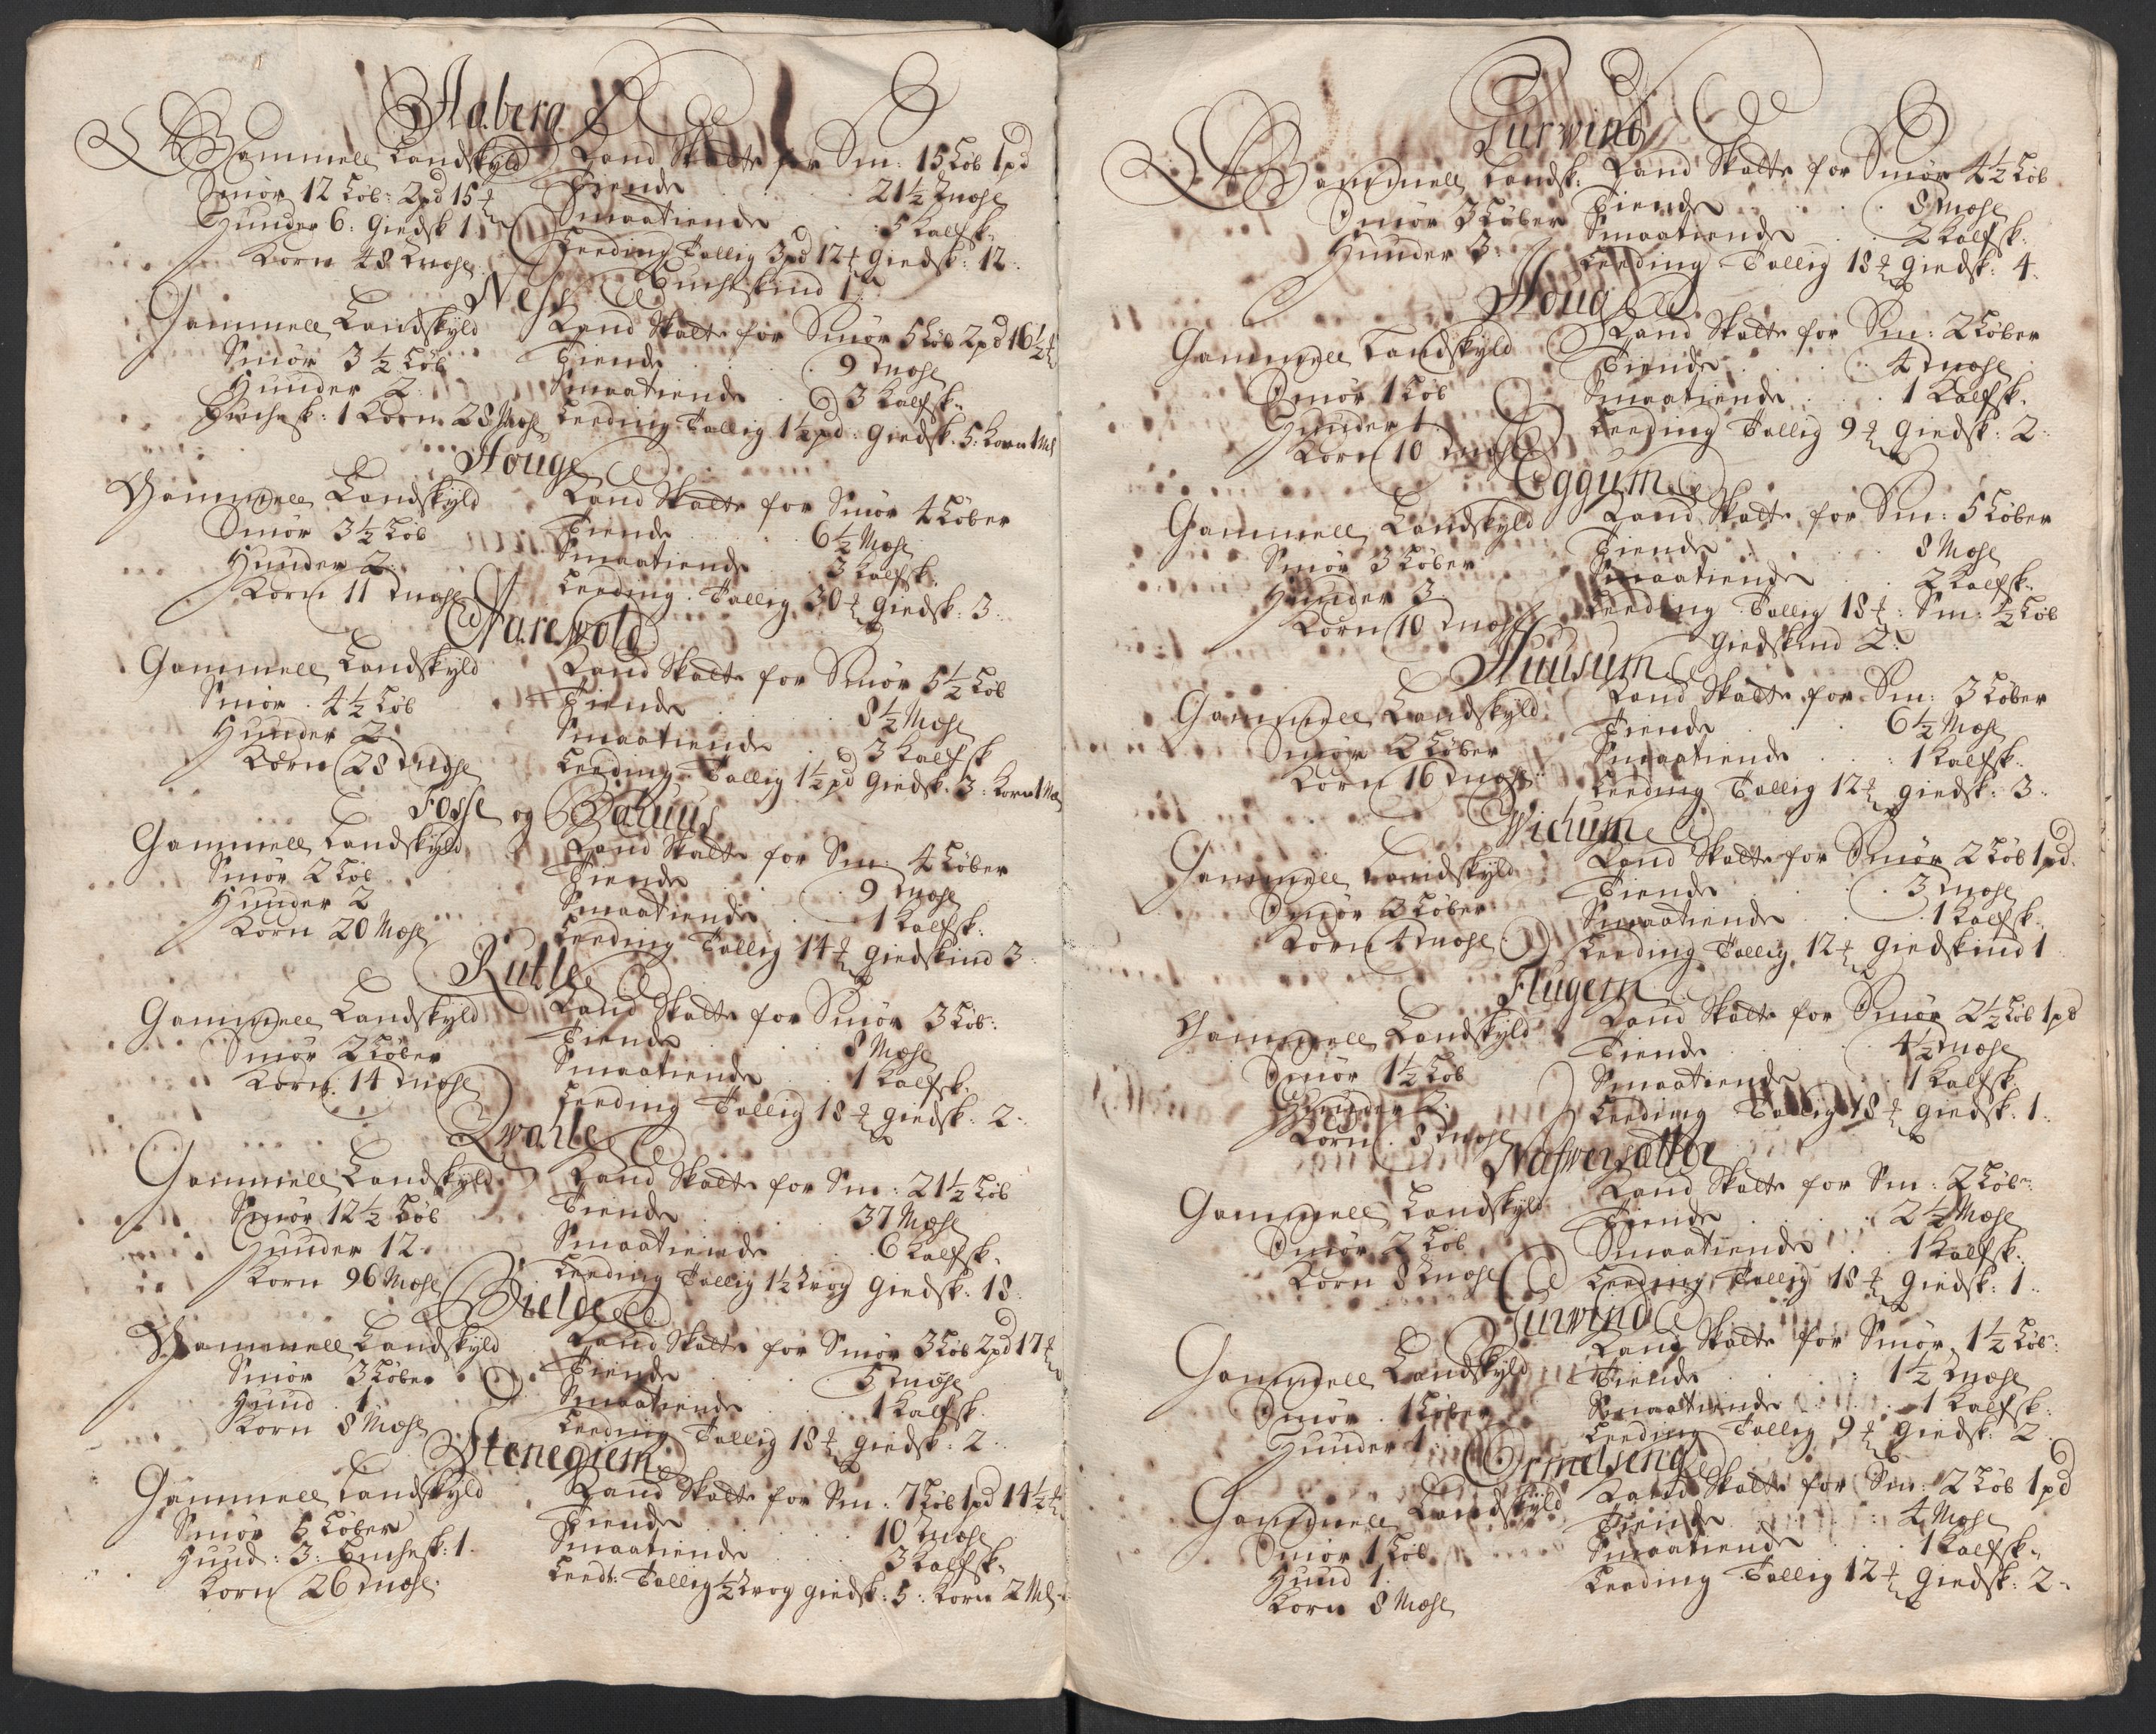 Aaberg
Gammell Landskyld
Smör 12 Löb: 2pd 15 ℔
Huuder 6: Giedsk 1
Korn 48 Mæhl
Land Skatt for Sm: 15 Löb 1pd
Tiende 21½ Mæhl
Smaatiende 5 Kalfsk:
Leeding Tallig 3pd 12 ℔ Giedsk: 12
Buchskind 1
Ness
Gammell Landskyld
Smör 3½ Löb
Huuder 2
Buchesk: 1 Korn 28 Mæhl
Land Skatt for Smör 5 Löb 2pd 16½ ℔
Tiende 9 Mæhl
Smaatiende 3 Kalfsk:
Leeding Tallig 1½ pd: Giedsk: 5: Korn 1 Ml
Houge
Gammell Landskyld
Smör 3½ Löb
Huuder 2
Korn 11 Mæhl
Land Skatt for Smör 4 Löber
Tiende 6½ Mæhl
Smaatiende 3 Kalfsk:
Leeding Tallig 30 ℔ Giedsk: 3
Farewold
Gammell Landskyld
Smör 4½ Löb
Huuder 2
Korn 28 Mæhl
Land Skatt for Smör 5½ Löb
Tiende 8½ Mæhl
Smaatiende 3 Kalfsk
Leeding Tallig 1½ pd Giedsk: 3: Korn 1 Ml
Fosse og
Gammell Landskyld
Smör 2 Löb
Huuder 2
Korn 20 Mæhl
Land Skatt for Sm: 4 Löber
Tiende 9 Mæhl
Smaatiende 1 Kalfsk:
Leeding Tallig 14 ℔ Giedskind 3
Rutle
Gammell Landskyld
Smör 2 Löber
Korn 14 Mæhl
Land Skatt for Smör 3 Löb:
Tiende 8 Mæhl
Smaatiende 1 Kalfsk:
Leeding Tallig 18 ℔ Giedsk: 2
Qvahle
Gammell Landskyld
Smör 12½ Löb
Huuder 12
Korn 96 Mæhl
Land Skatt for Sm: 21½ Löb
Tiende 37 Mæhl
Smaatiende 6 Kalfsk:
Leeding Tallig 1½ Vog Giedsk: 18
Bielde
Gammell Landskyld
Smör 3 Löber
Huud 1
Korn 8 Mæhl
Land Skatt for Smör 3 Löb 2pd 17 ℔
Tiende 5 Mæhl
Smaatiende 1 Kalfsk
Leeding Tallig 18 ℔ Giedsk: 2
Stenegiem
Gammell Landskyld
Smör 5 Löber
Huud: 3: Buchesk: 1
Korn 26 Mæhl
Land Skatt for Sm: 7 Löb 1pd 14½ ℔
Tiende 10 Mæhl
Smaatiende 3 Kalfsk:
Leed: Tallig ½ Vog Giedsk: 5: Korn 2 Ml
Turwind
Gammell Landsk:
Smör 3 Löber
Huuder 3
Land Skatt for Smör 4½ Löb
Tiende 8 Mæhl
Smaatiende 2 Kalfsk:
Leeding Tallig 18 ℔ Giedsk: 4
Houg
Gammell Landskyld
Smör 1 Löb
Huuder 1
Korn 10 Mæhl
Land Skatt for Sm: 2 Löber
Tiende 4 Mæhl
Smaatiende 1 Kalfsk.
Leeding Tallig 9 ℔ Giedsk: 2
Eggum
Gammell Landskyld
Smör 3 Löber
Huuder 3
Korn 10 Mæhl
Land Skatt for Sm: 5 Löber
Tiende 8 Mæhl
Smaatiende 2 Kalfsk:
Leeding Tallig 18 ℔: Sm: ½ Löb
Giedskind 2
Huusum
Gammell Landskyld
Smör 2 Löber
Korn 16 Mæhl
Land Skatt for Sm: 3 Löber
Tiende 6½ Mæhl
Smaatiende 1 Kalfsk.
Leeding Tallig 12 ℔ Giedsk: 3
Wichum
Gammell Landskyld
Smör 2 Löber
Korn 4 Mæhl
Land Skatt for Smör 2 Löb 1pd.
Tiende 3 Mæhl
Smaatiende 1 Kalfsk:
Leeding Tallig 12 ℔ Giedskind 1
Flugem
Gammell Landskyld
Smör 1½ Löb
Huuder 2
Korn 8 Mæhl
Land Skatt for Smör 2½ Löb 1pd
Tiende 4½ Mæhl
Smaatiende 1 Kalfsk
Leeding Tallig 18 ℔ Giedsk. 1
Nafwersætter
Gammell Landskyld
Smör 2 Löb
Korn 8 Mæhl
Land Skatt for Sm: 2 Löb:
Tiende 2½ Mæhl
Smaatiende 1 Kalfsk:
Leeding Tallig 18 ℔ Giedsk: 1
Turwind
Gammell Landskyld
Smör 1 Löber
Huuder 1
Land Skatt for Smör 1½ Löb:
Tiende 1½ Mæhl
Smaatiende 1 Kalfsk:
Leeding Tallig 9 ℔ Giedsk: 2
Ormelseng
Gammell Landskyld
Smör 1 Löb
Huud 1
Korn 8 Mæhl
Land Skatt for Sm: 2 Löb 1pd
Tiende 4 Mæhl
Smaatiende 1 Kalfsk:
Leeding Tallig 12 ℔ Giedsk: 2